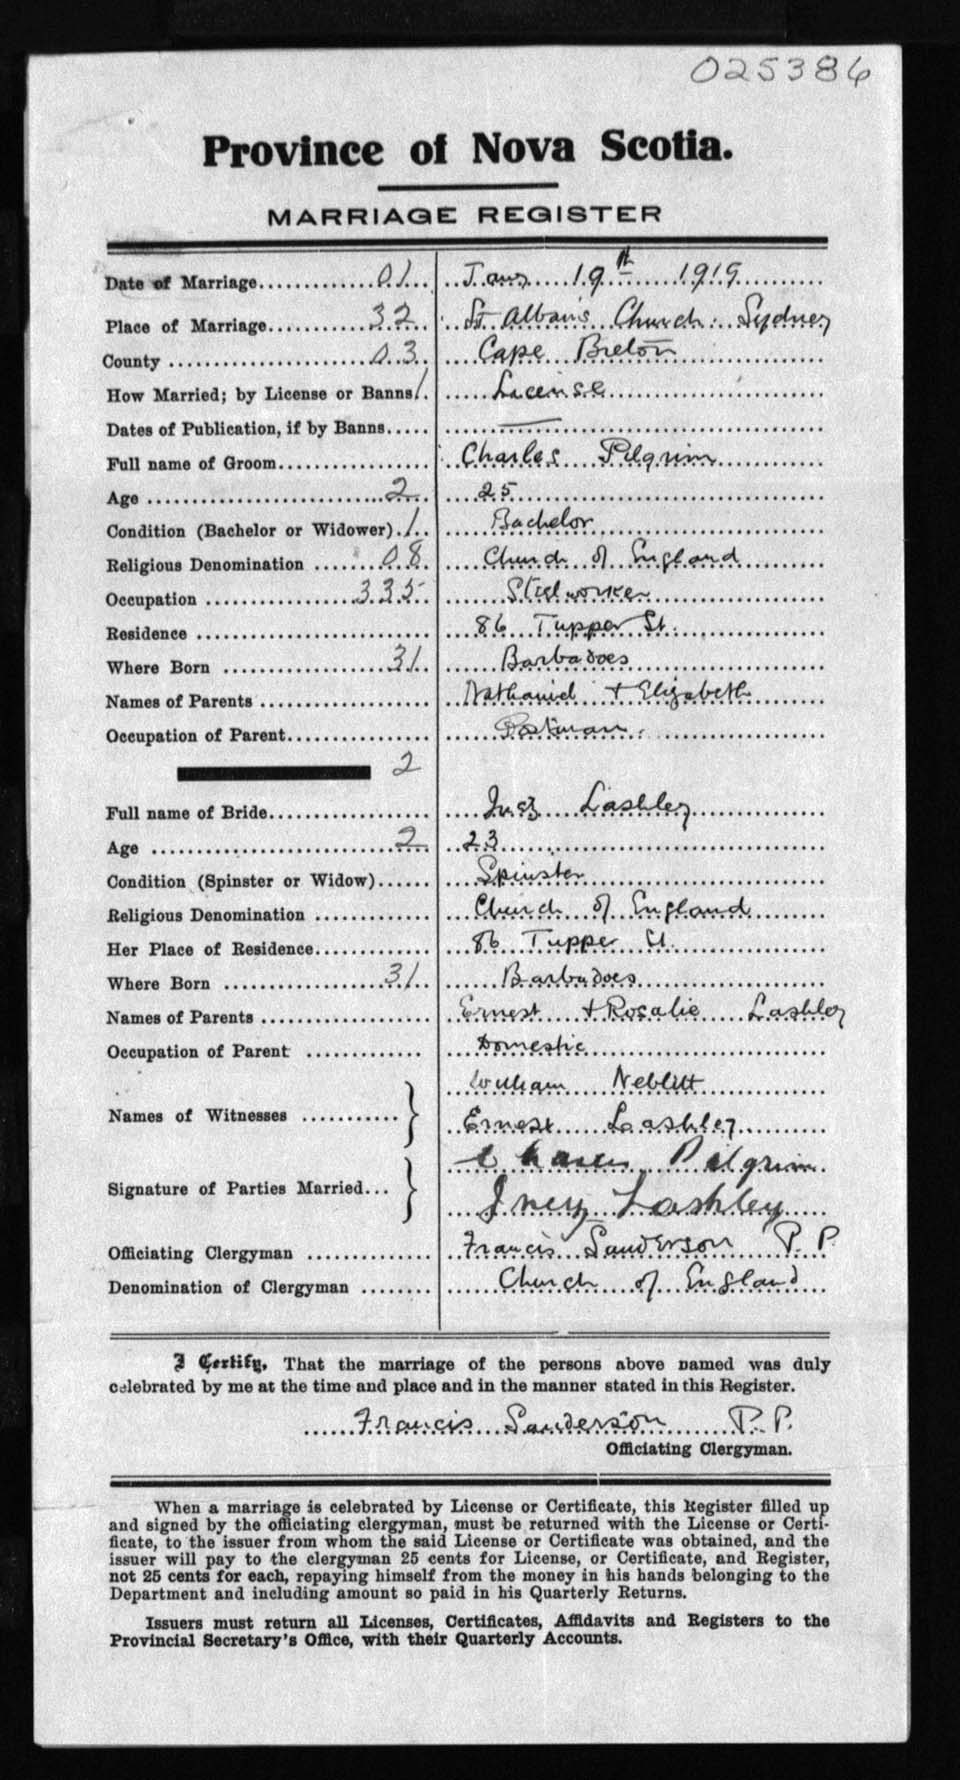 025386
Province of Nova Scotia.
MARRIAGE REGISTER
Date of Marriage 01 Jany 19th 1919
Place of Marriage 32 St Alban's Church Sydney
County 03 Cape Breton
How Married; by License or Banns 1 License
Dates of Publication, if by Banns —
Full name of Groom Charles Pilgrim
Age 2 25
Condition (Bachelor or Widower) 1 Bachelor
Religious Denomination 08 Church of England
Occupation 335 Steelworker
Residence 86 Tupper St.
Where Born 31 Barbadoes
Names of Parents Nathaniel + Elizabeth
Occupation of Parent Postman
2
Full name of Bride Inez Lashley
Age 2 23
Condition (Spinster or Widow) Spinster
Religious Denomination Church of England
Her Place of Residence 86 Tupper St.
Where Born 31 Barbadoes
Names of Parents Ernest + Rosalie Lashley
Occupation of Parent Domestic
William Neblitt
Names of Witnesses Ernest Lashley
Charles Pilgrim
Signature of Parties Married... Inez Lashley
Officiating Clergyman Francis Sanderson P. P.
Denomination of Clergyman Church of England
I Certify, That the marriage of the persons above named was duly
celebrated by me at the time and place and in the manner stated in this Register.
Francis Sanderson P. P.
Officiating Clergyman.
When a marriage is celebrated by License or Certificate, this Register filled up
and signed by the officiating clergyman, must be returned with the License or Certi-
ficate, to the issuer from whom the said License or Certificate was obtained, and the
issuer will pay to the clergyman 25 cents for License, or Certificate, and Register,
not 25 cents for each, repaying himself from the money in his hands belonging to the
Department and including amount so paid in his Quarterly Returns.
Issuers must return all Licenses, Certificates, Affidavits and Registers to the
Provincial Secretary's Office, with their Quarterly Accounts.